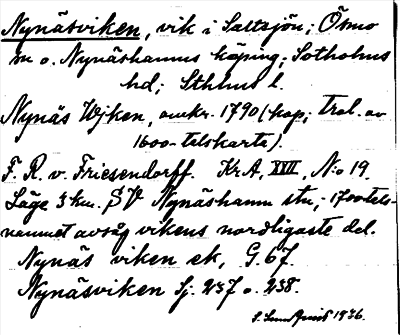 Nynäsviken, vik i Saltsjön; Ösmo
sn o. Nynäshamns köping; Sotholms
hd; Sthlms l.
Nynäs Wjken, omkr. 1790 (kop; trol. av
1600-talskarta).
F. R. v. Friesendorff. Kr.A, XVII, N:o 19.
Läge 3 km. SV Nynäshamn stn; 1700tals-
namnet avsåg vikens nordligaste del.
Nynäs viken ek, G. 67.
Nynäsviken Sj. 237 o. 238.
S. Lundquist 1936.